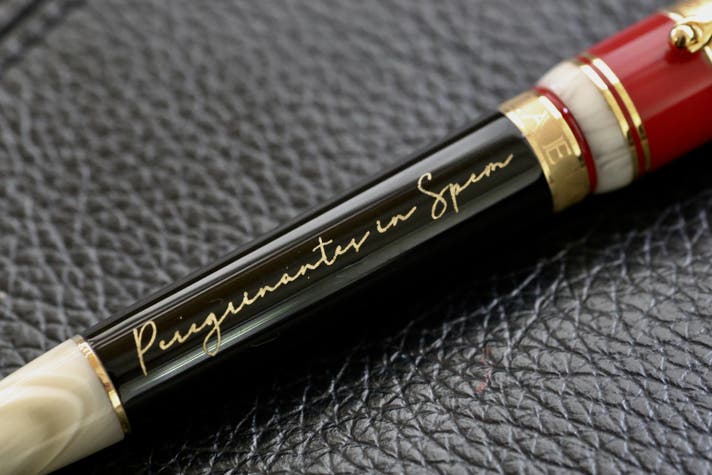 Peregrinantes in Spem
AE